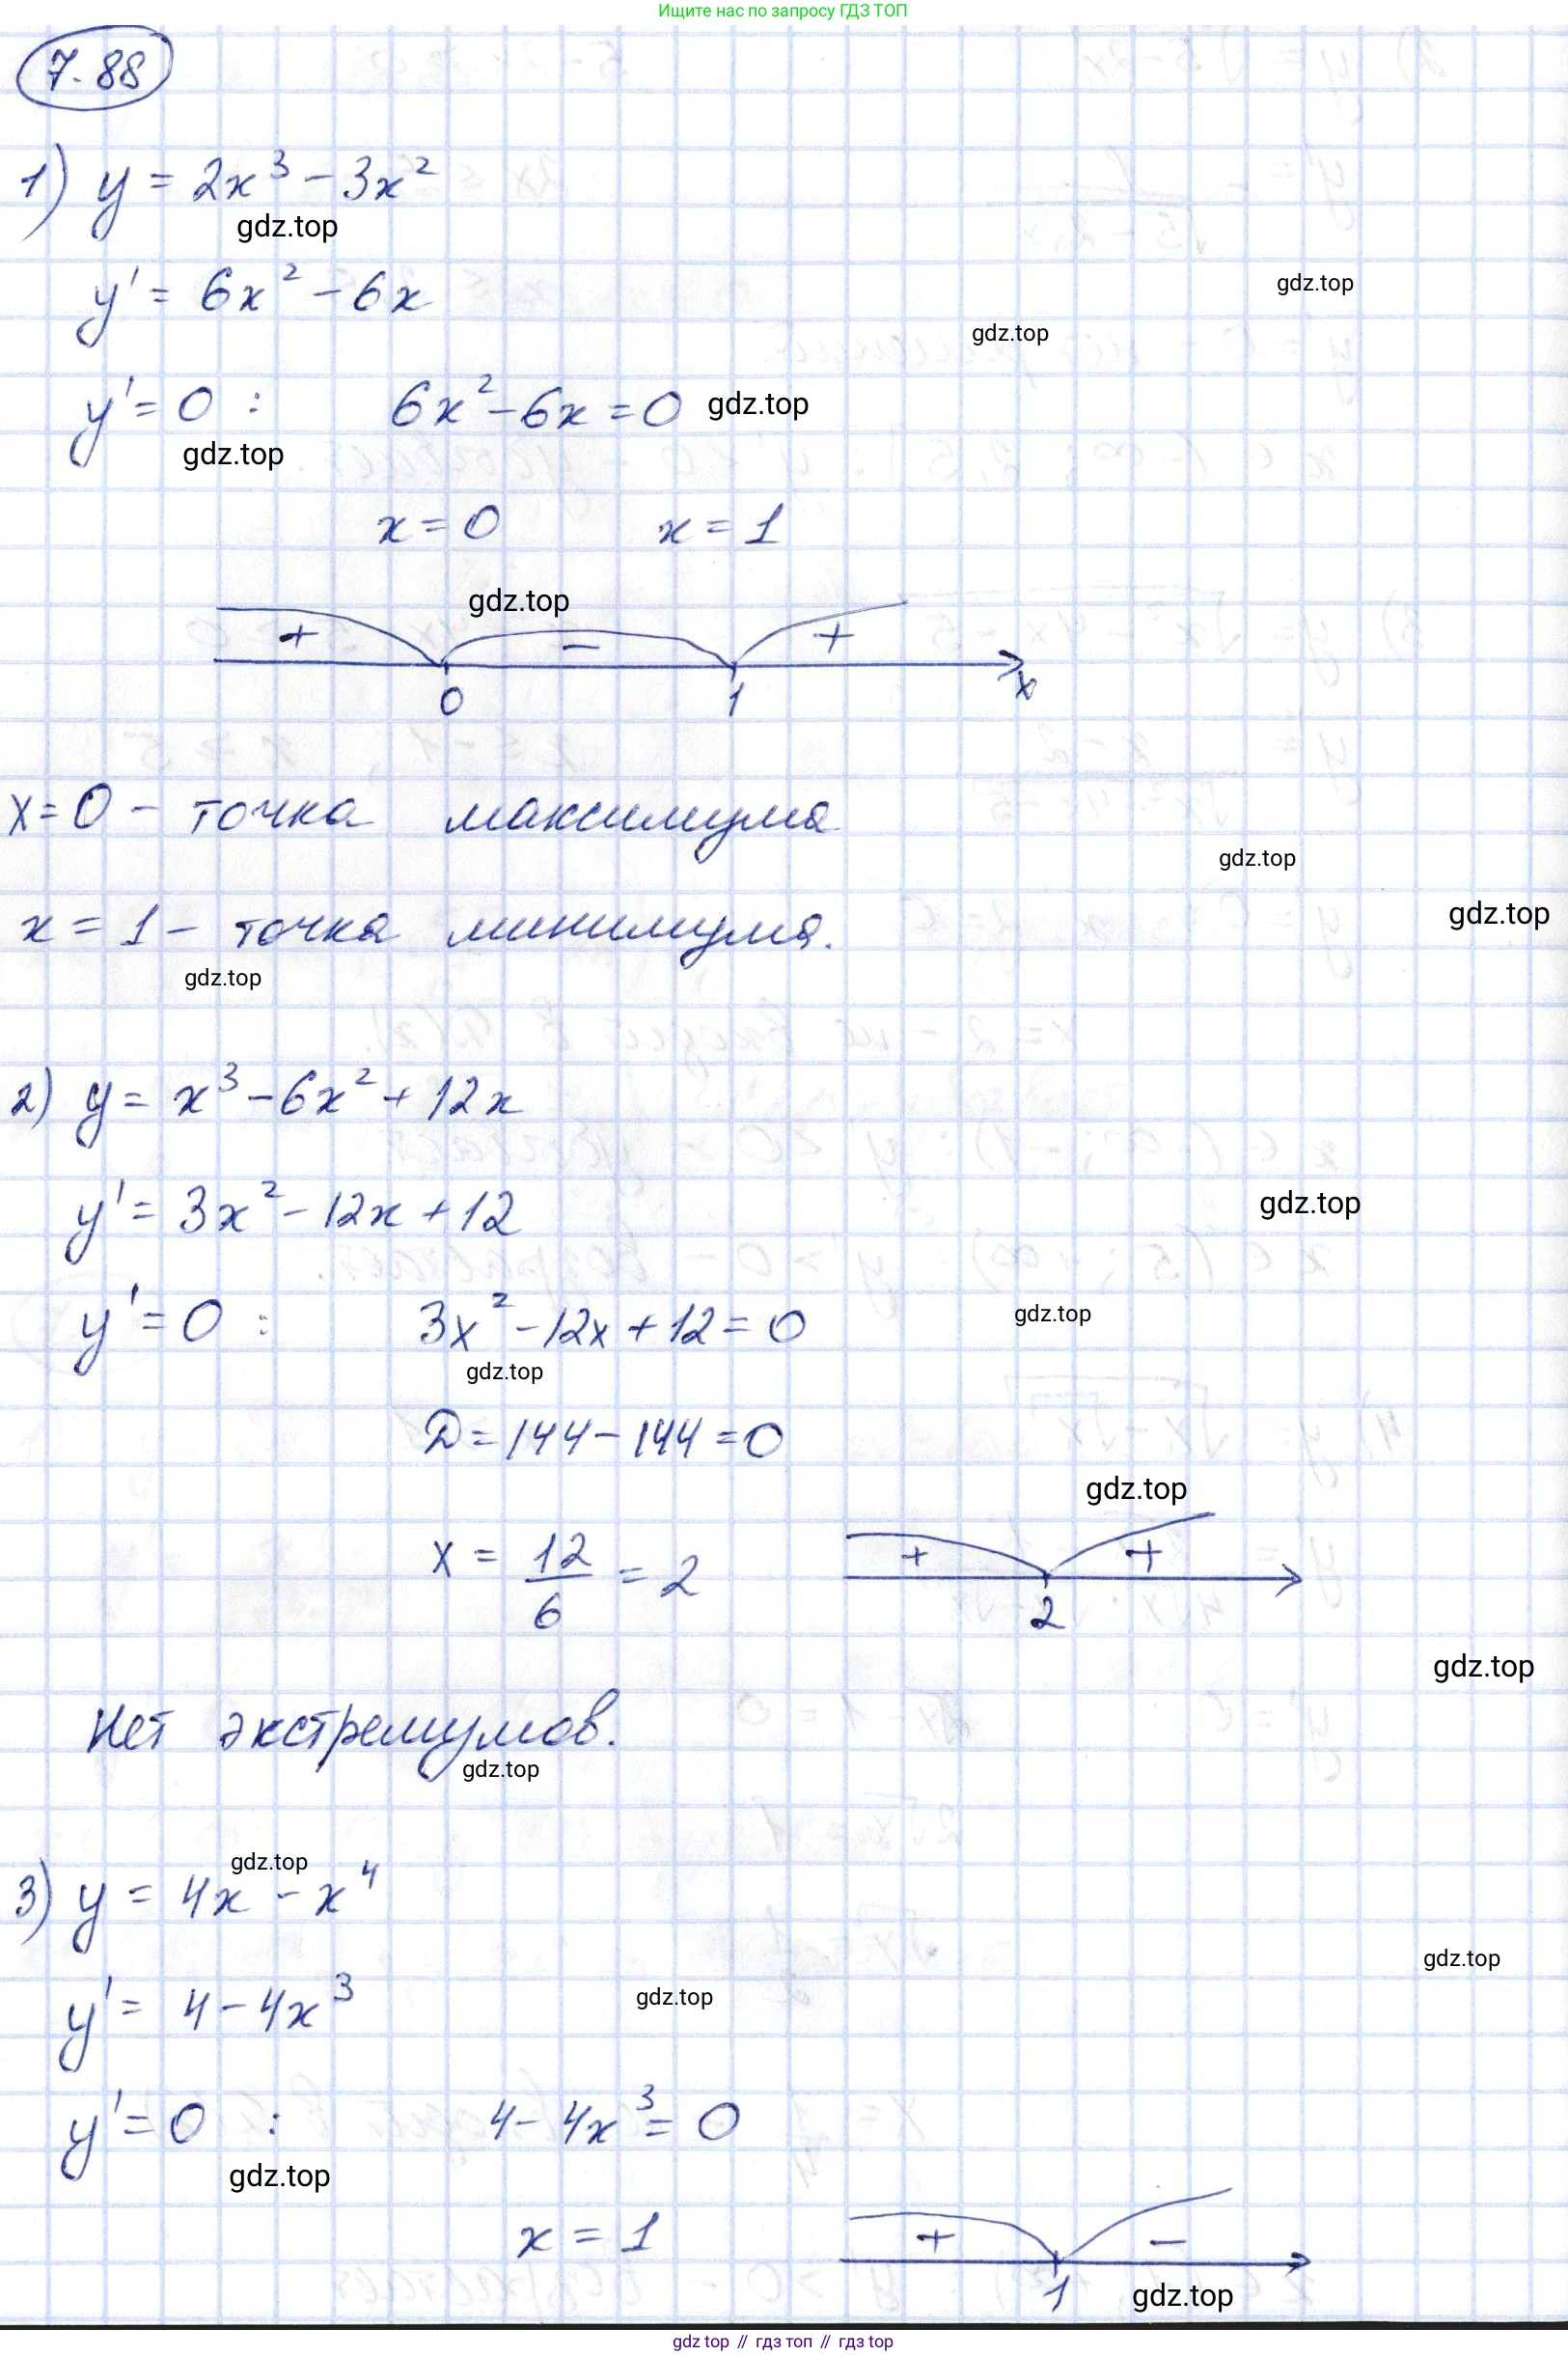 Ищите нас по запросу ГДЗ ТОП
7.88
1) y = 2x³ - 3x²
gdz.top
y' = 6x² - 6x
gdz.top
gdz.top
y' = 0 : 6x² - 6x = 0 gdz.top
gdz.top
x = 0 x = 1
gdz.top
+ - +
0 1 x
x = 0 - точка максимума
gdz.top
x = 1 - точка минимума.
gdz.top
gdz.top
2) y = x³ - 6x² + 12x
y' = 3x² - 12x + 12
gdz.top
y' = 0 : 3x² - 12x + 12 = 0
gdz.top
gdz.top
D = 144 - 144 = 0
gdz.top
x = 12/6 = 2
+ +
2
gdz.top
Нет экстремумов.
gdz.top
gdz.top
3) y = 4x - x⁴
gdz.top
y' = 4 - 4x³
gdz.top
y' = 0 : 4 - 4x³ = 0
gdz.top
x = 1
+ -
1
gdz.top
gdz top // гдз топ // гдз top